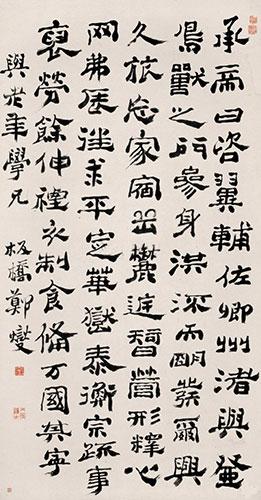 承帝曰咨翼輔佐卿州渚與登
鳥獸之門參身洪流而明發爾興
久旅忘家宿岳麓庭智營形釋心
罔弗辰往求平定華嶽泰衡宗疏事
裒勞餘伸禋衣制食備万國其寧
與老年學兄 板橋鄭燮